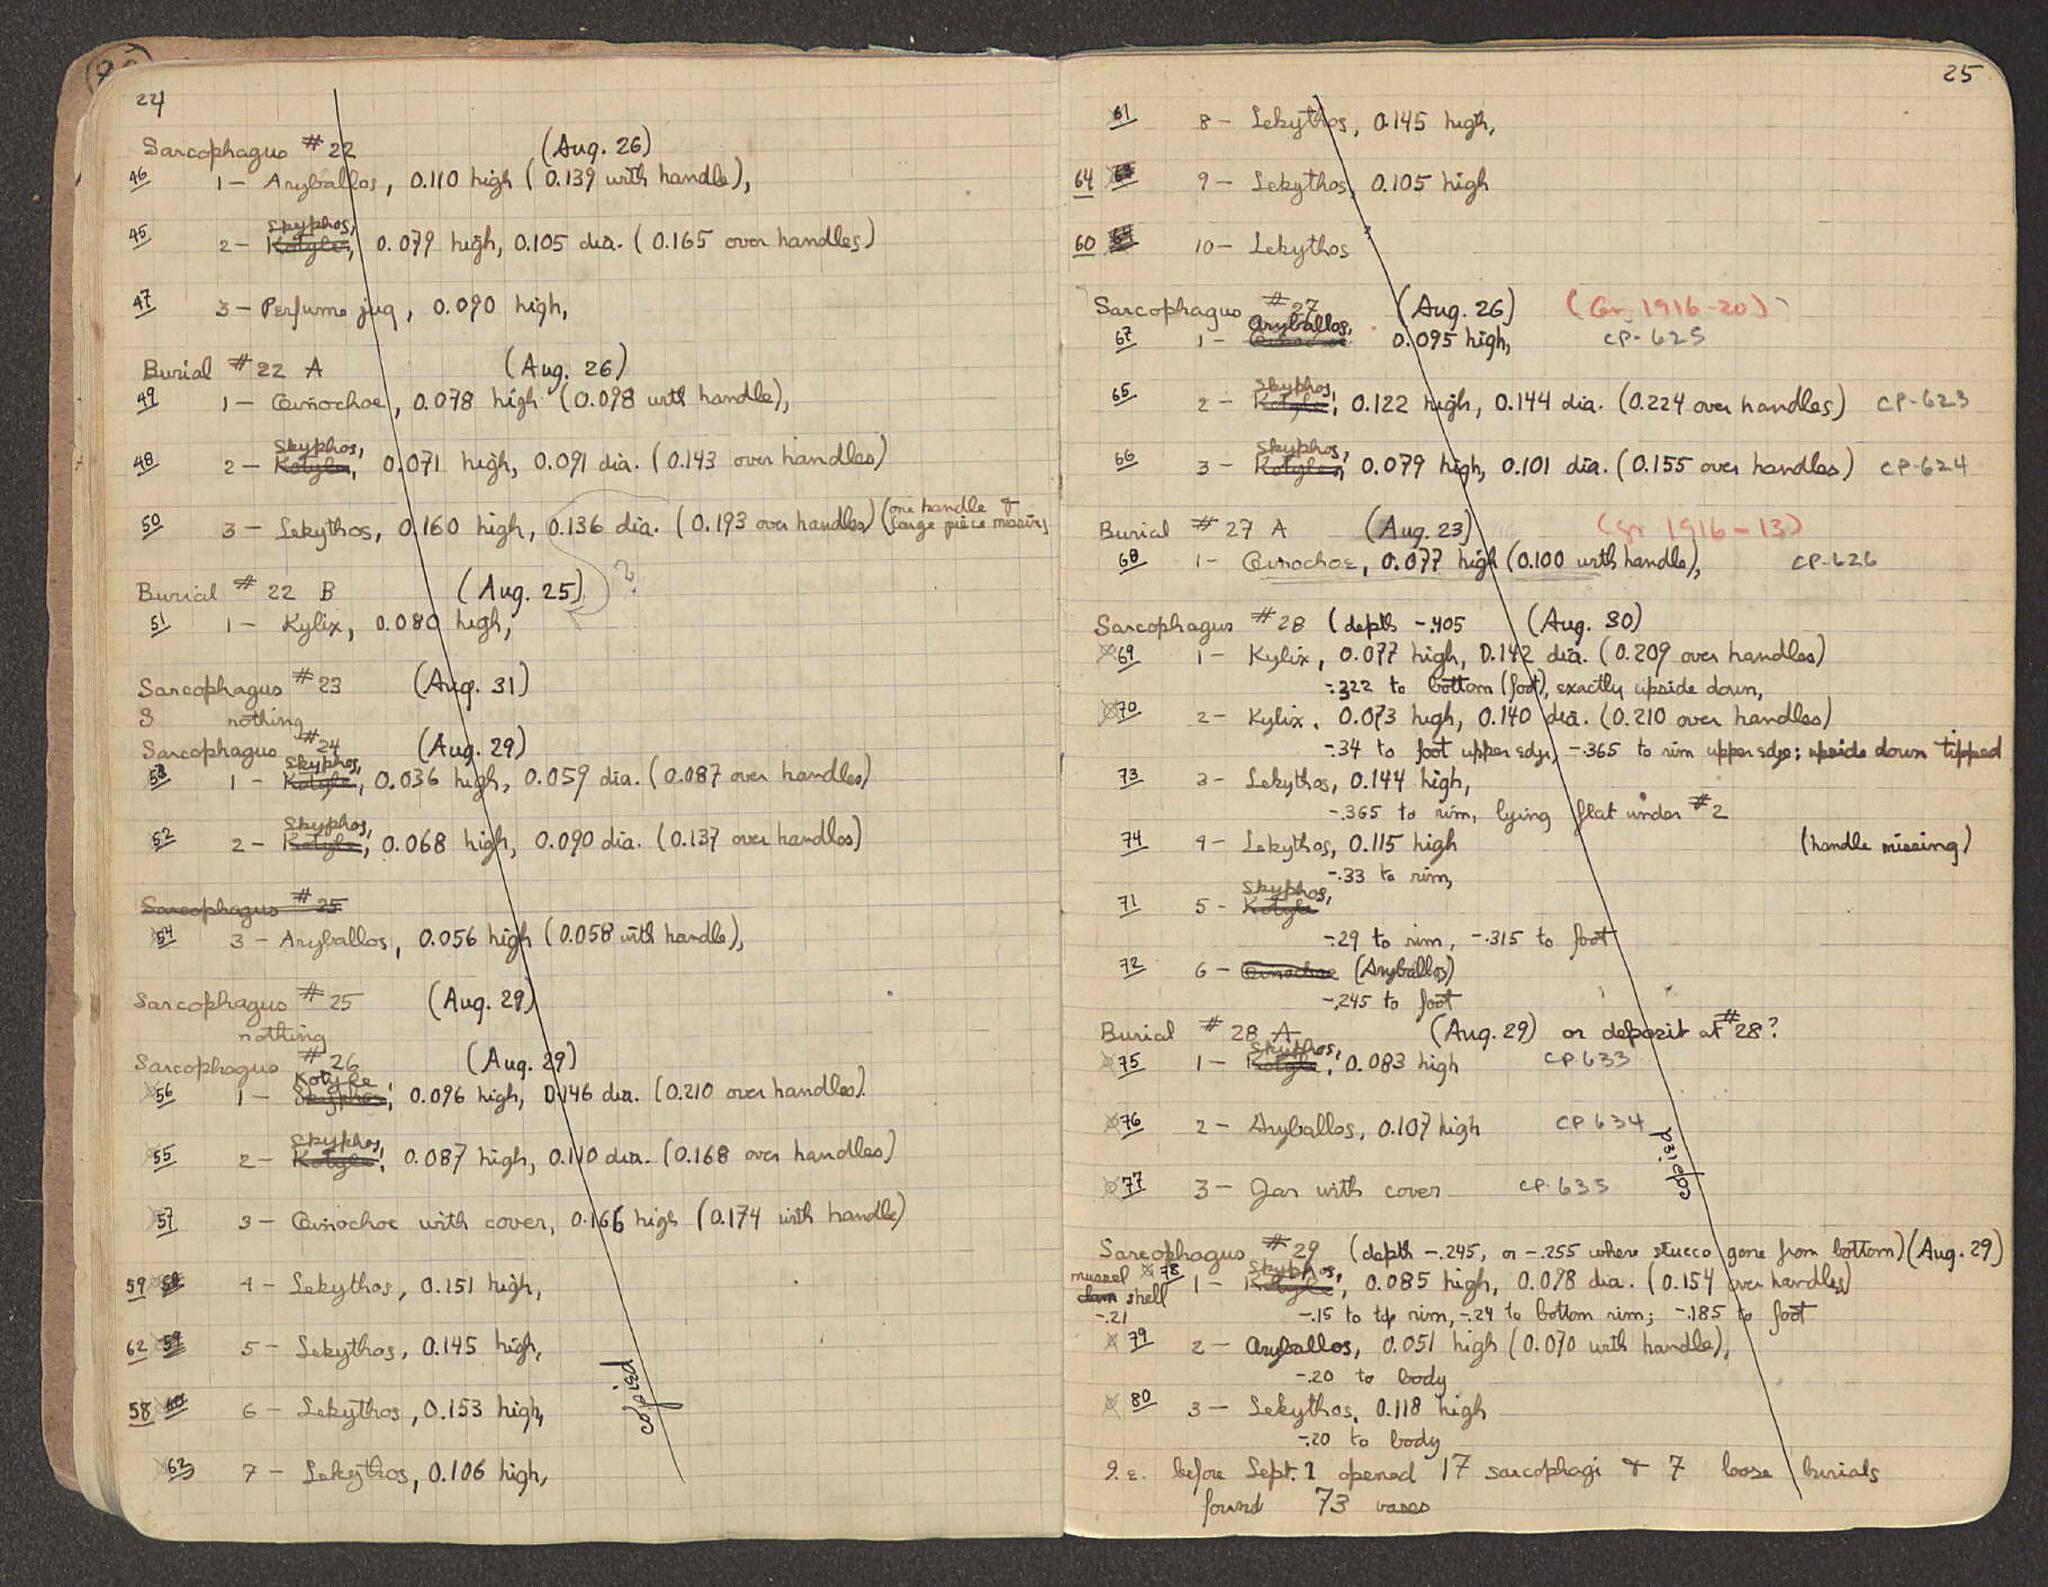 24
Sarcophagus # 22 (Aug. 26)
46 1 - Aryballos, 0.110 high (0.139 with handle),
Skyphos,
45 2 - Kotyle, 0.079 high, 0.105 dia. (0.165 over handles)
47 3 - Perfume jug, 0.090 high,
Burial # 22 A (Aug. 26)
49 1 - Oeinochoe, 0.078 high (0.098 with handle),
Skyphos,
48 2 - Kotyle, 0.071 high, 0.091 dia. (0.143 over handles)
50 3 - Lekythos, 0.160 high, 0.136 dia. (0.193 over handles) (one handle & large piece missing)
Burial # 22 B (Aug. 25) ?
51 1 - Kylix, 0.080 high,
Sarcophagus # 23 (Aug. 31)
S nothing
Sarcophagus # 24 (Aug. 29)
Skyphos,
53 1 - Kotyle, 0.036 high, 0.059 dia. (0.087 over handles)
Skyphos,
52 2 - Kotyle, 0.068 high, 0.090 dia. (0.137 over handles)
Sarcophagus # 25
54 3 - Aryballos, 0.056 high (0.058 with handle),
Sarcophagus # 25 (Aug. 29)
nothing
Sarcophagus # 26 (Aug. 29)
Kotyle
56 1 - Skyphos, 0.096 high, 0.146 dia. (0.210 over handles).
Skyphos,
55 2 - Kotyle, 0.087 high, 0.110 dia. (0.168 over handles)
57 3 - Oeinochoe with cover, 0.166 high (0.174 with handle)
59 58 4 - Lekythos, 0.151 high,
62 59 5 - Lekythos, 0.145 high,
58 60 6 - Lekythos, 0.153 high,
63 7 - Lekythos, 0.106 high,
copied
25
61 8 - Lekythos, 0.145 high,
64 9 - Lekythos, 0.105 high
60 10 - Lekythos ?
Sarcophagus # 27 (Aug. 26) (Gr. 1916-20)
Aryballos,
67 1 - Oeinochoe 0.095 high, CP-625
Skyphos,
65 2 - Kotyle, 0.122 high, 0.144 dia. (0.224 over handles) CP-623
Skyphos,
66 3 - Kotyle, 0.079 high, 0.101 dia. (0.155 over handles) CP-624
Burial # 27 A (Aug. 23) (Gr 1916-13)
68 1 - Oeinochoe, 0.077 high (0.100 with handle), CP-626
Sarcophagus # 28 (depth -.405 (Aug. 30)
69 1 - Kylix, 0.077 high, 0.142 dia. (0.209 over handles)
-.322 to bottom (foot), exactly upside down,
70 2 - Kylix, 0.073 high, 0.140 dia. (0.210 over handles)
-.34 to foot upper edge, -.365 to rim upper edge; upside down tipped
73 3 - Lekythos, 0.144 high,
-.365 to rim, lying flat under #2
74 4 - Lekythos, 0.115 high (handle missing)
-.33 to rim,
Skyphos,
71 5 - Kotyle
-.29 to rim, -.315 to foot
72 6 - Oeinochoe (Aryballos)
-.245 to foot
Burial # 28 A (Aug. 29) or deposit at #28?
Skyphos,
75 1 - Kotyle, 0.083 high CP 633
76 2 - Aryballos, 0.107 high CP 634
77 3 - Jar with cover CP. 635
copied
Sarcophagus # 29 (depth -.245, or -.255 where stucco gone from bottom) (Aug. 29)
Skyphos,
78 1 - Kotyle, 0.085 high, 0.098 dia. (0.154 over handles)
mussel
clam shell
-.21
-.15 to top rim, -.24 to bottom rim; -.185 to foot
79 2 - Aryballos, 0.051 high (0.070 with handle),
-.20 to body
80 3 - Lekythos, 0.118 high
-.20 to body
I.E. before Sept. 1 opened 17 sarcophagi & 7 loose burials
found 73 vases